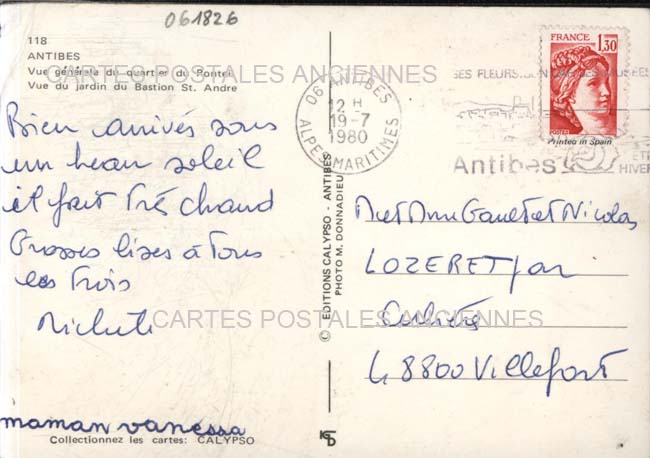 061826
118
ANTIBES
Vue générale du quartier du Pontei
Vue du jardin du Bastion St. Andre
CARTES POSTALES ANCIENNES
Bien arrivés sous
un beau soleil
il fait très chaud
Grosses bises à Tous
les Trois
maman vanessa
Collectionnez les cartes: CALYPSO
CARTES POSTALES ANCIENNES
© EDITIONS CALYPSO - ANTIBES
PHOTO M. DONNADIEU
06 ANTIBES
12 H
19-7
1980
ALPES MARITIMES
SES FLEURS
Antibes
ETE
HIVER
FRANCE
1,30
POSTES
Printed in Spain
et Nicolas
LOZERET par
48800 Villefort